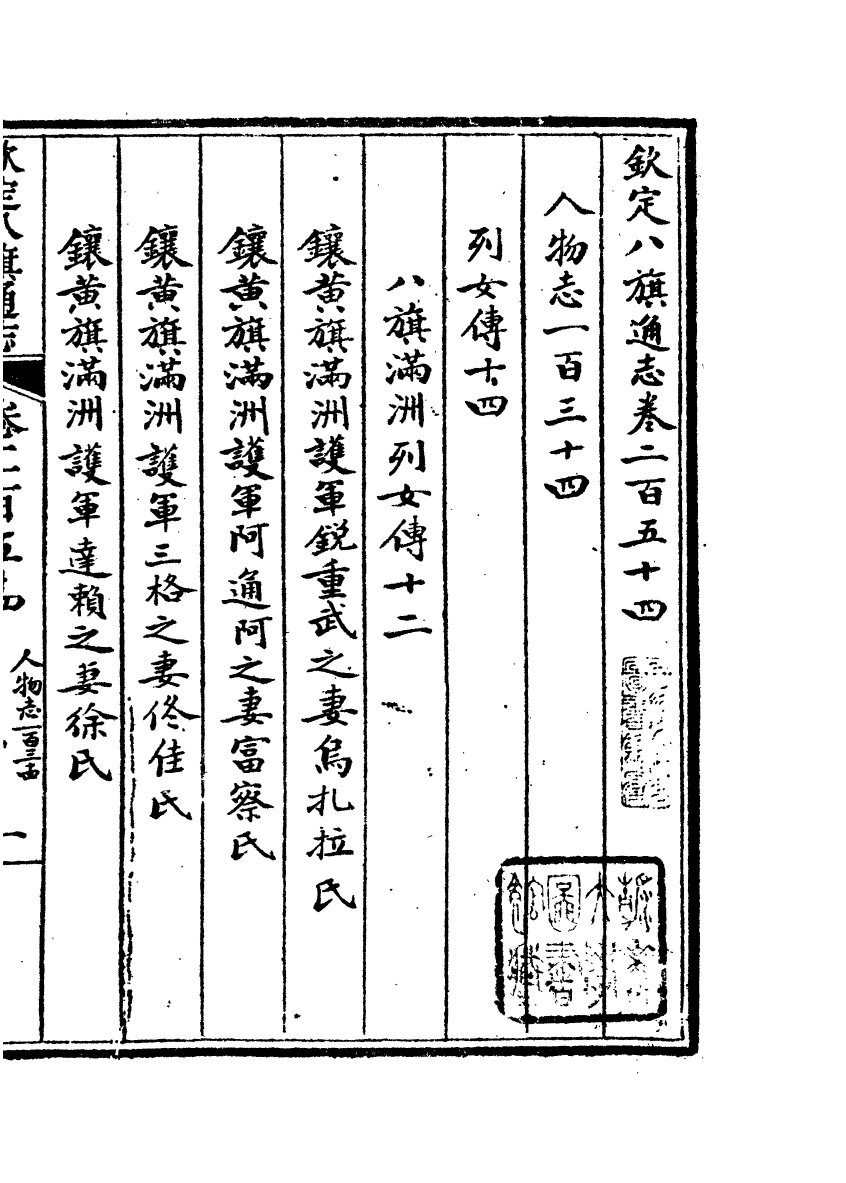 欽定八旗通志卷二百五十四
人物志一百三十四
列女傳十四
八旗滿洲列女傳十二
鑲黃旗滿洲護軍鋭重武之妻烏扎拉氏
鑲黃旗滿洲護軍阿通阿之妻富察氏
鑲黃旗滿洲護軍三格之妻佟佳氏
鑲黃旗滿洲護軍達賴之妻徐氏
欽定八旗通志
卷二百五十四
人物志一百三十四
一